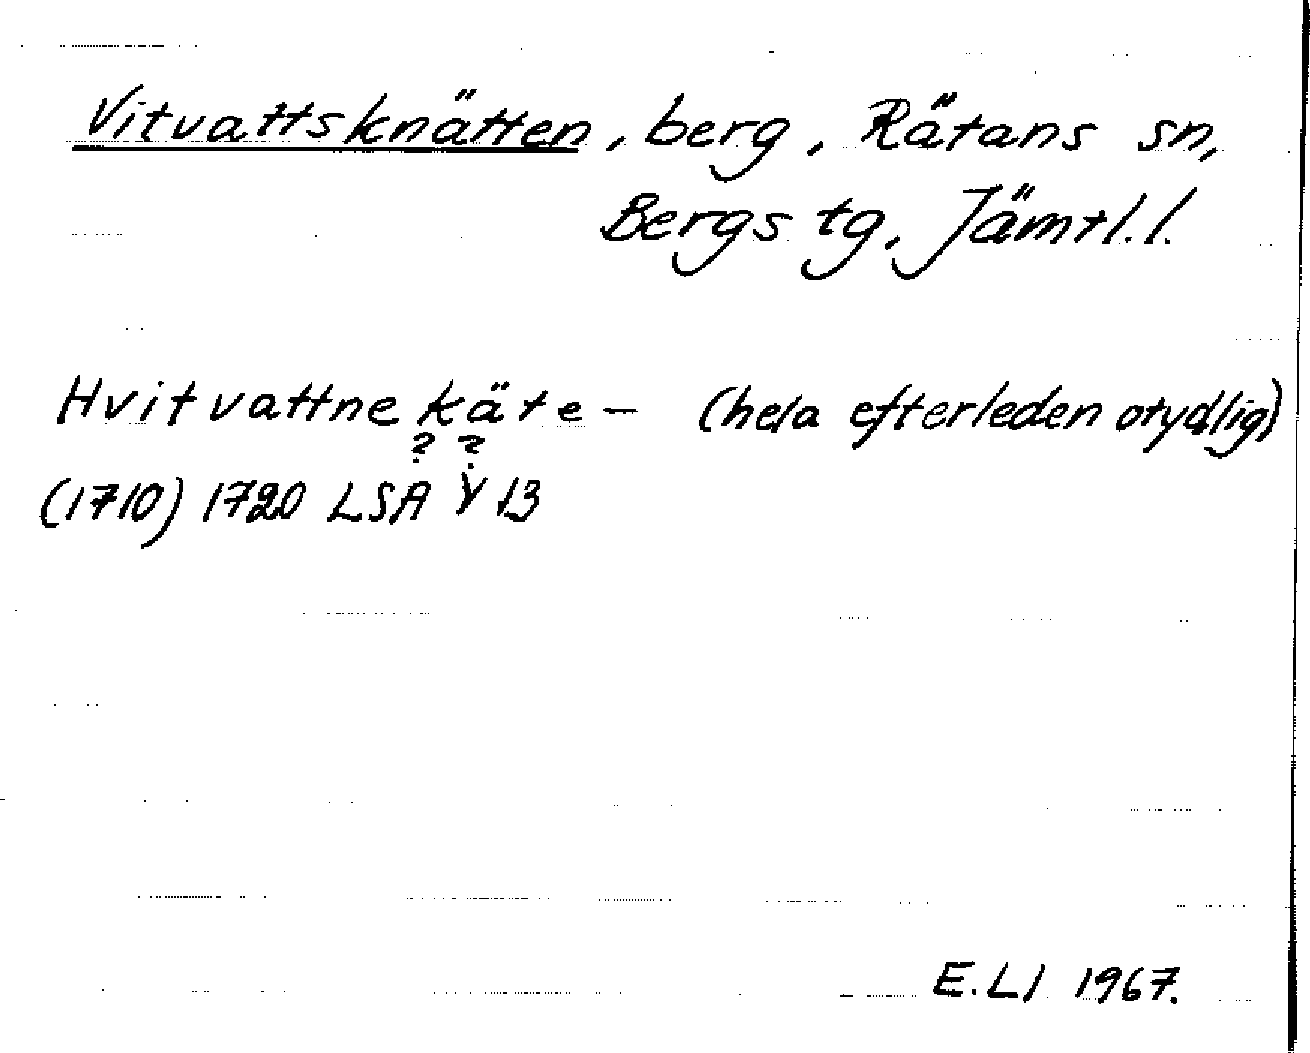 Vitvattsknätten, berg, Rätans sn,
Bergs tg, Jämtl. l.
Hvitvattne käte - (hela efterleden otydlig)
? ?
(1710) 1720 LSA Y 13
E. LI 1967.